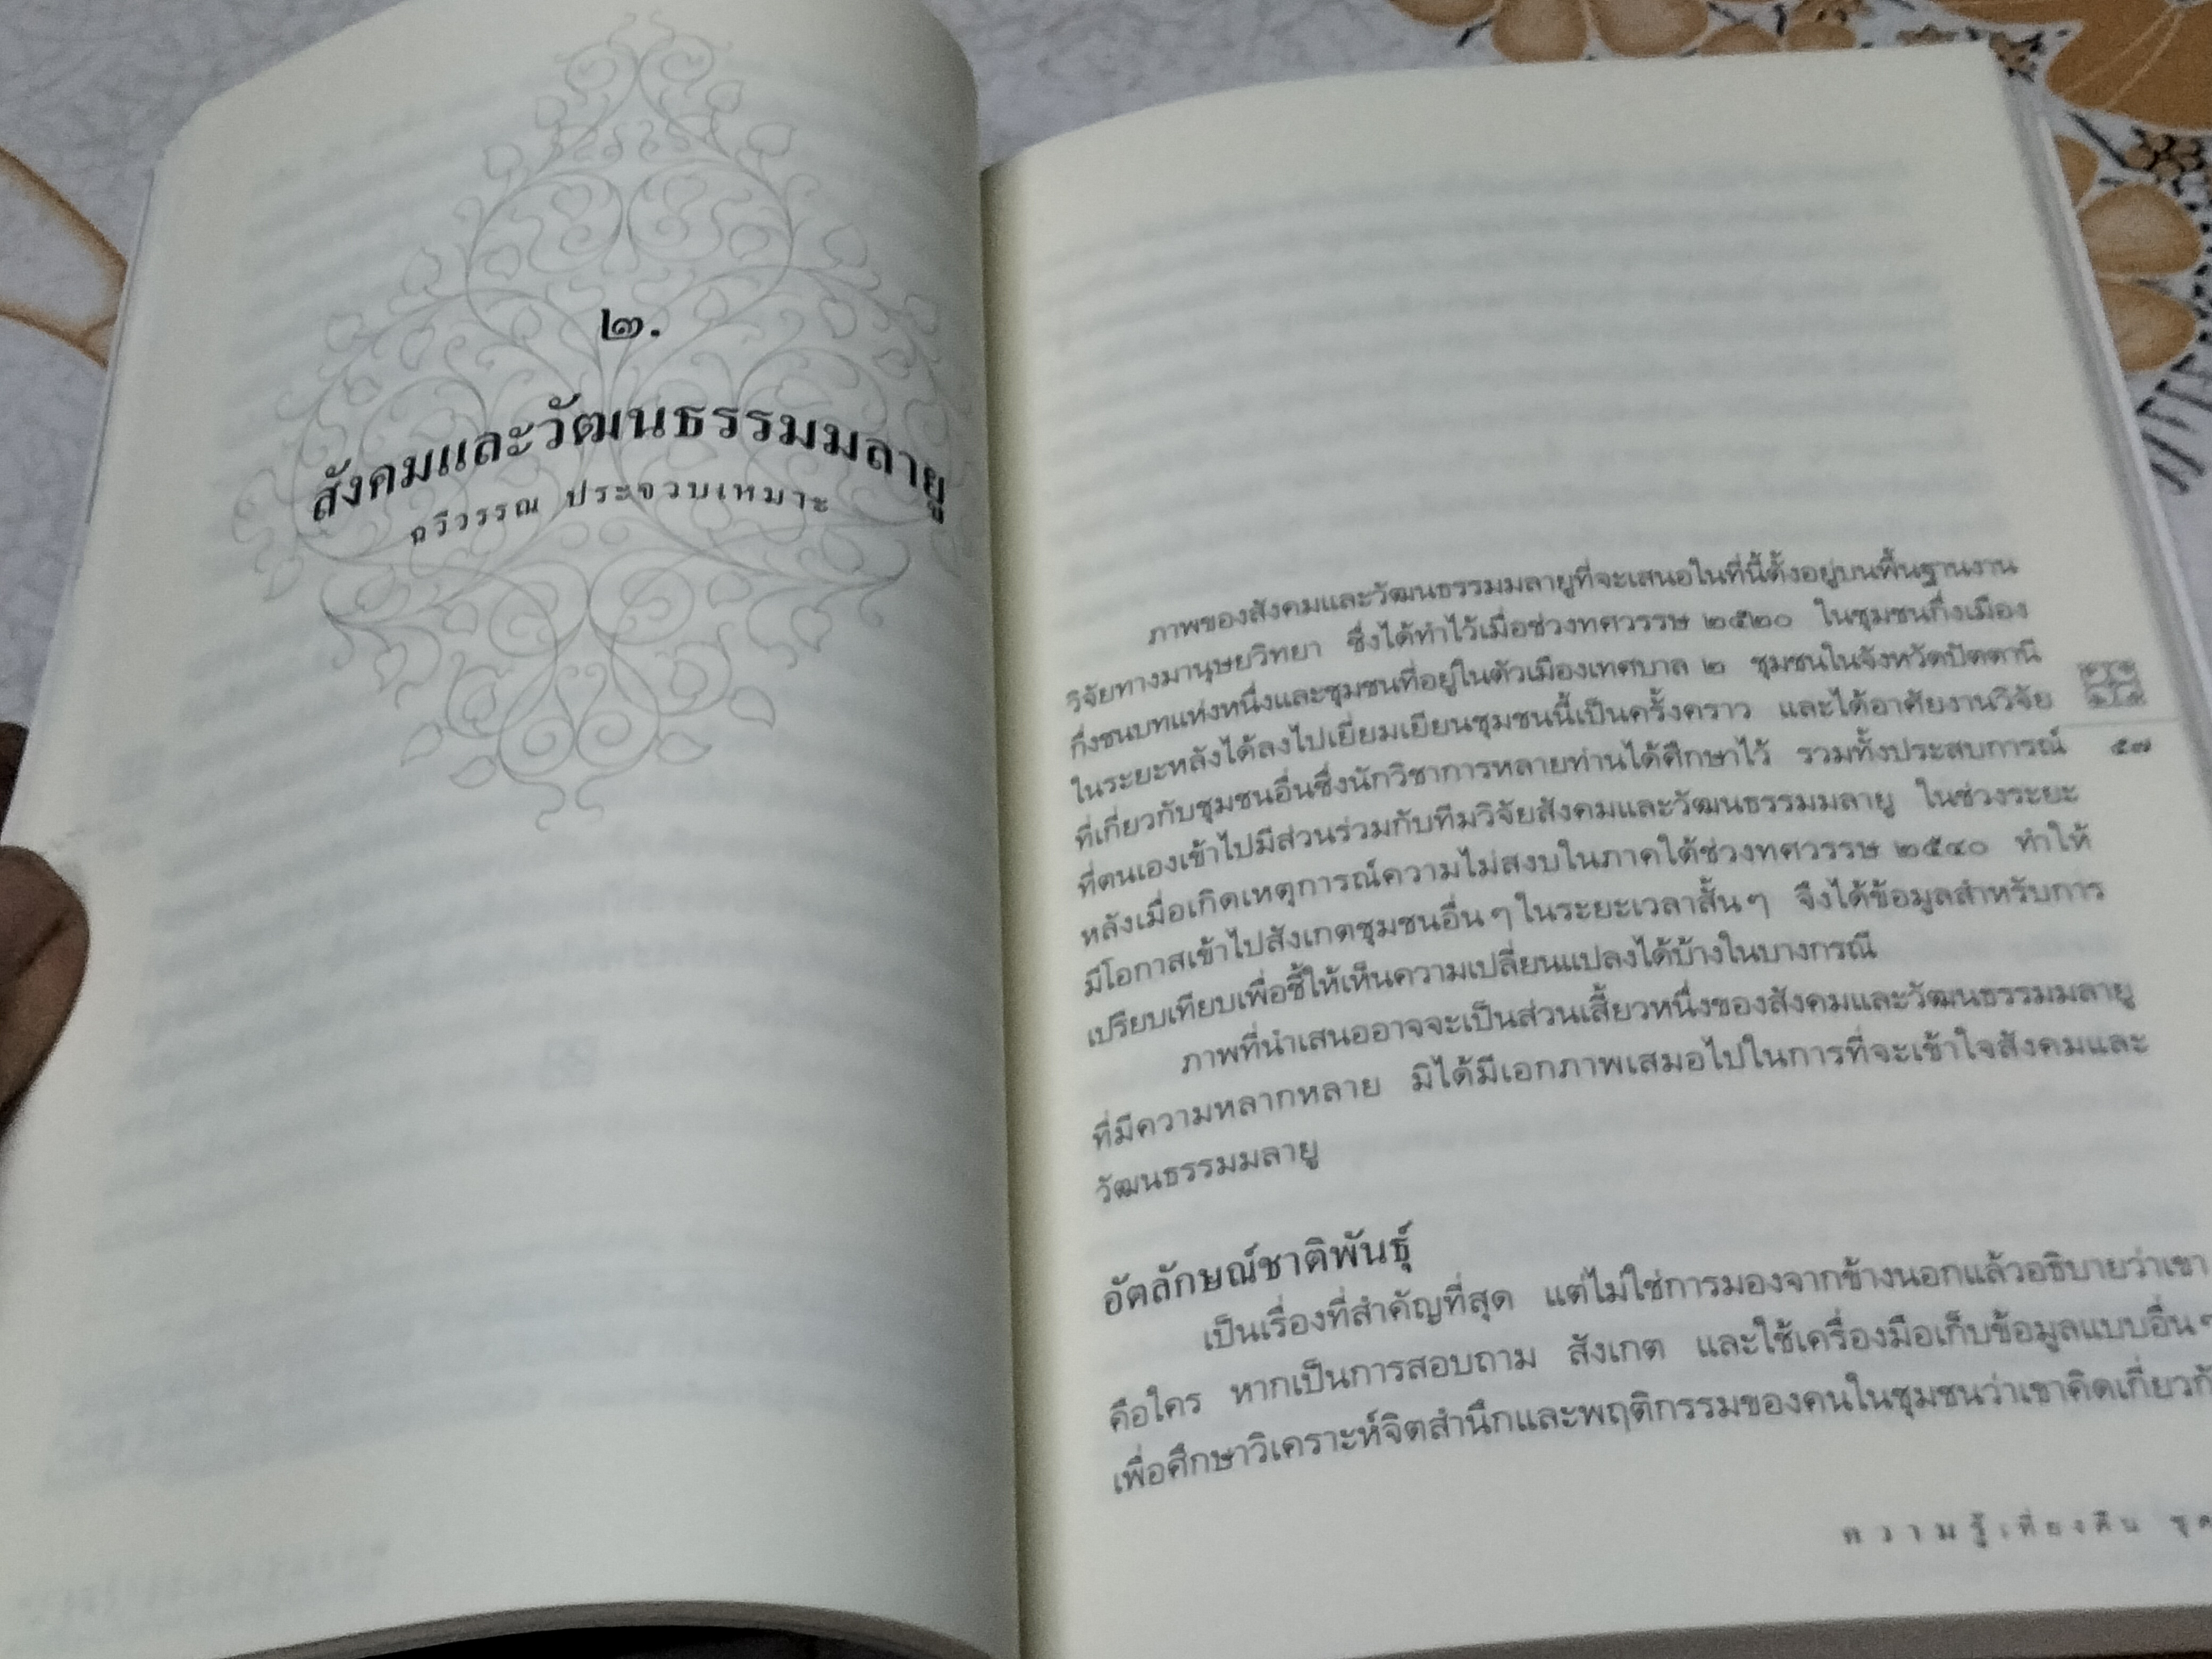 ๒.
สังคมและวัฒนธรรมมลายู
ฉวีวรรณ ประจวบเหมาะ
ภาพของสังคมและวัฒนธรรมมลายูที่จะเสนอในที่นี้ตั้งอยู่บนพื้นฐานงาน
วิจัยทางมานุษยวิทยา ซึ่งได้ทำไว้เมื่อช่วงทศวรรษ ๒๕๒๐ ในชุมชนกึ่งเมือง
กึ่งชนบทแห่งหนึ่งและชุมชนที่อยู่ในตัวเมืองเทศบาล ๒ ชุมชนในจังหวัดปัตตานี
ในระยะหลังได้ลงไปเยี่ยมเยียนชุมชนนี้เป็นครั้งคราว และได้อาศัยงานวิจัย
ที่เกี่ยวกับชุมชนอื่นซึ่งนักวิชาการหลายท่านได้ศึกษาไว้ รวมทั้งประสบการณ์
ที่ตนเองเข้าไปมีส่วนร่วมกับทีมวิจัยสังคมและวัฒนธรรมมลายู ในช่วงระยะ
หลังเมื่อเกิดเหตุการณ์ความไม่สงบในภาคใต้ช่วงทศวรรษ ๒๕๔๐ ทำให้
มีโอกาสเข้าไปสังเกตชุมชนอื่นๆ ในระยะเวลาสั้นๆ จึงได้ข้อมูลสำหรับการ
เปรียบเทียบเพื่อชี้ให้เห็นความเปลี่ยนแปลงได้บ้างในบางกรณี
ภาพที่นำเสนออาจจะเป็นส่วนเสี้ยวหนึ่งของสังคมและวัฒนธรรมมลายู
ที่มีความหลากหลาย มิได้มีเอกภาพเสมอไปในการที่จะเข้าใจสังคมและ
วัฒนธรรมมลายู
อัตลักษณ์ชาติพันธุ์
เป็นเรื่องที่สำคัญที่สุด แต่ไม่ใช่การมองจากข้างนอกแล้วอธิบายว่าเขา
คือใคร หากเป็นการสอบถาม สังเกต และใช้เครื่องมือเก็บข้อมูลแบบอื่นๆ
เพื่อศึกษาวิเคราะห์จิตสำนึกและพฤติกรรมของคนในชุมชนว่าเขาคิดเกี่ยวกั
๕๗
ความรู้เที่ยงคืน ชุด